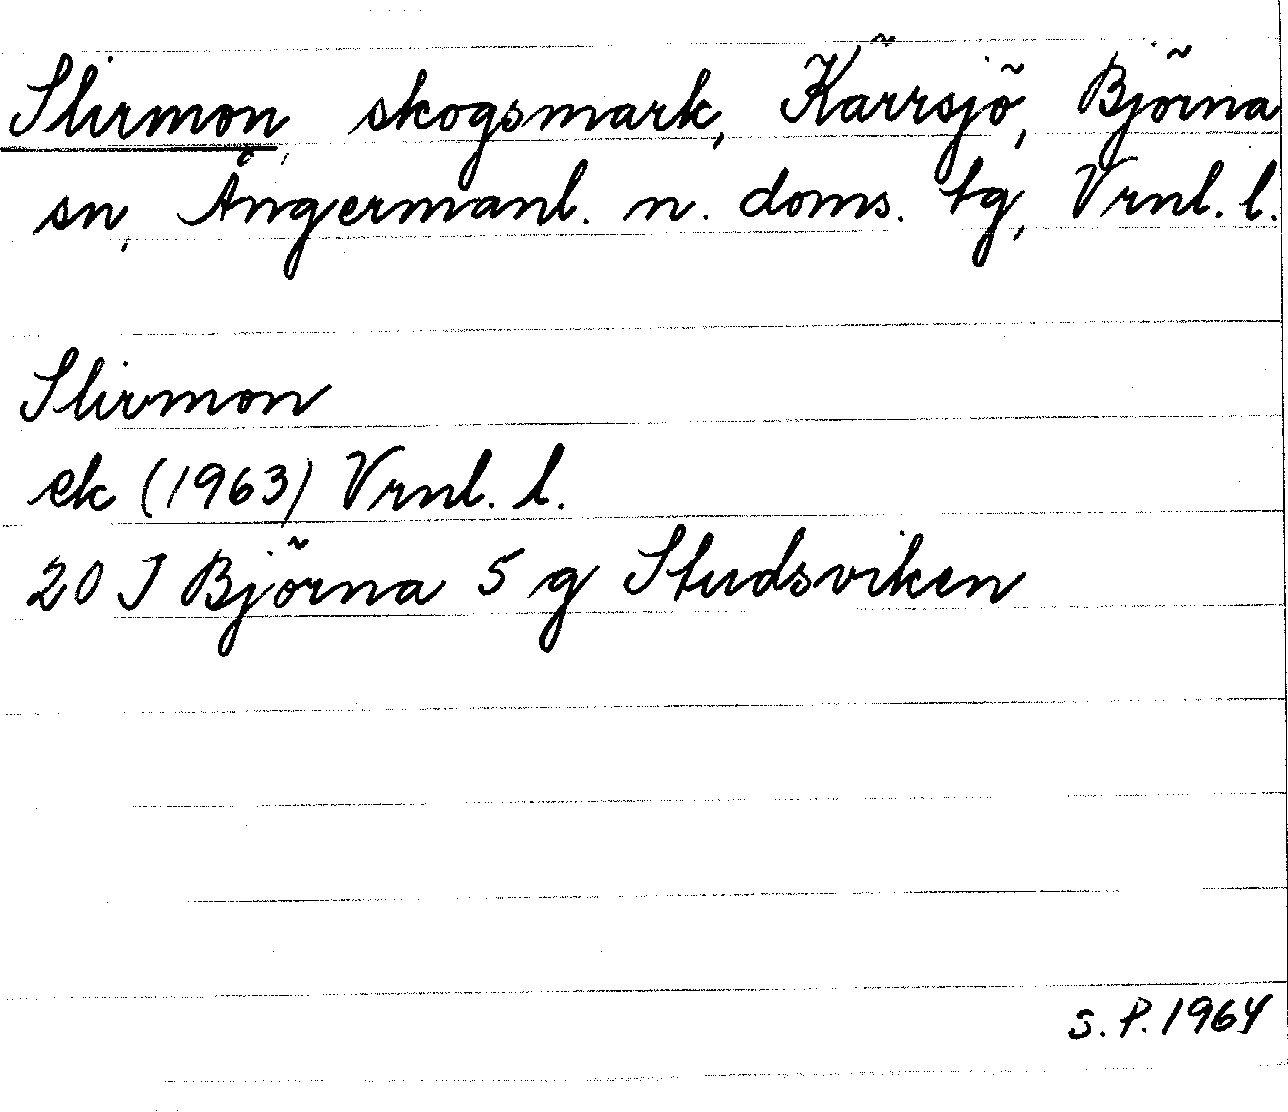 Slirmon, skogsmark, Kärrsjö, Björna
sn, Ångermanl. n. doms. tg, Vrnl. l.
Slirmon
ek (1963) Vrnl. l.
20 J Björna 5 g Studsviken
S. P. 1964